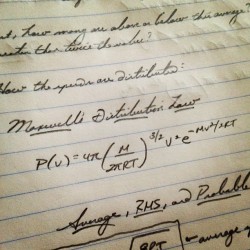 , how many are above or below this average?
greater than twice the value?
How the speeds are distributed:
Maxwell's Distribution Law
P(v) = 4π (M/2πRT)^3/2 v² e^-Mv²/2RT
Average, RMS, and Probable
average